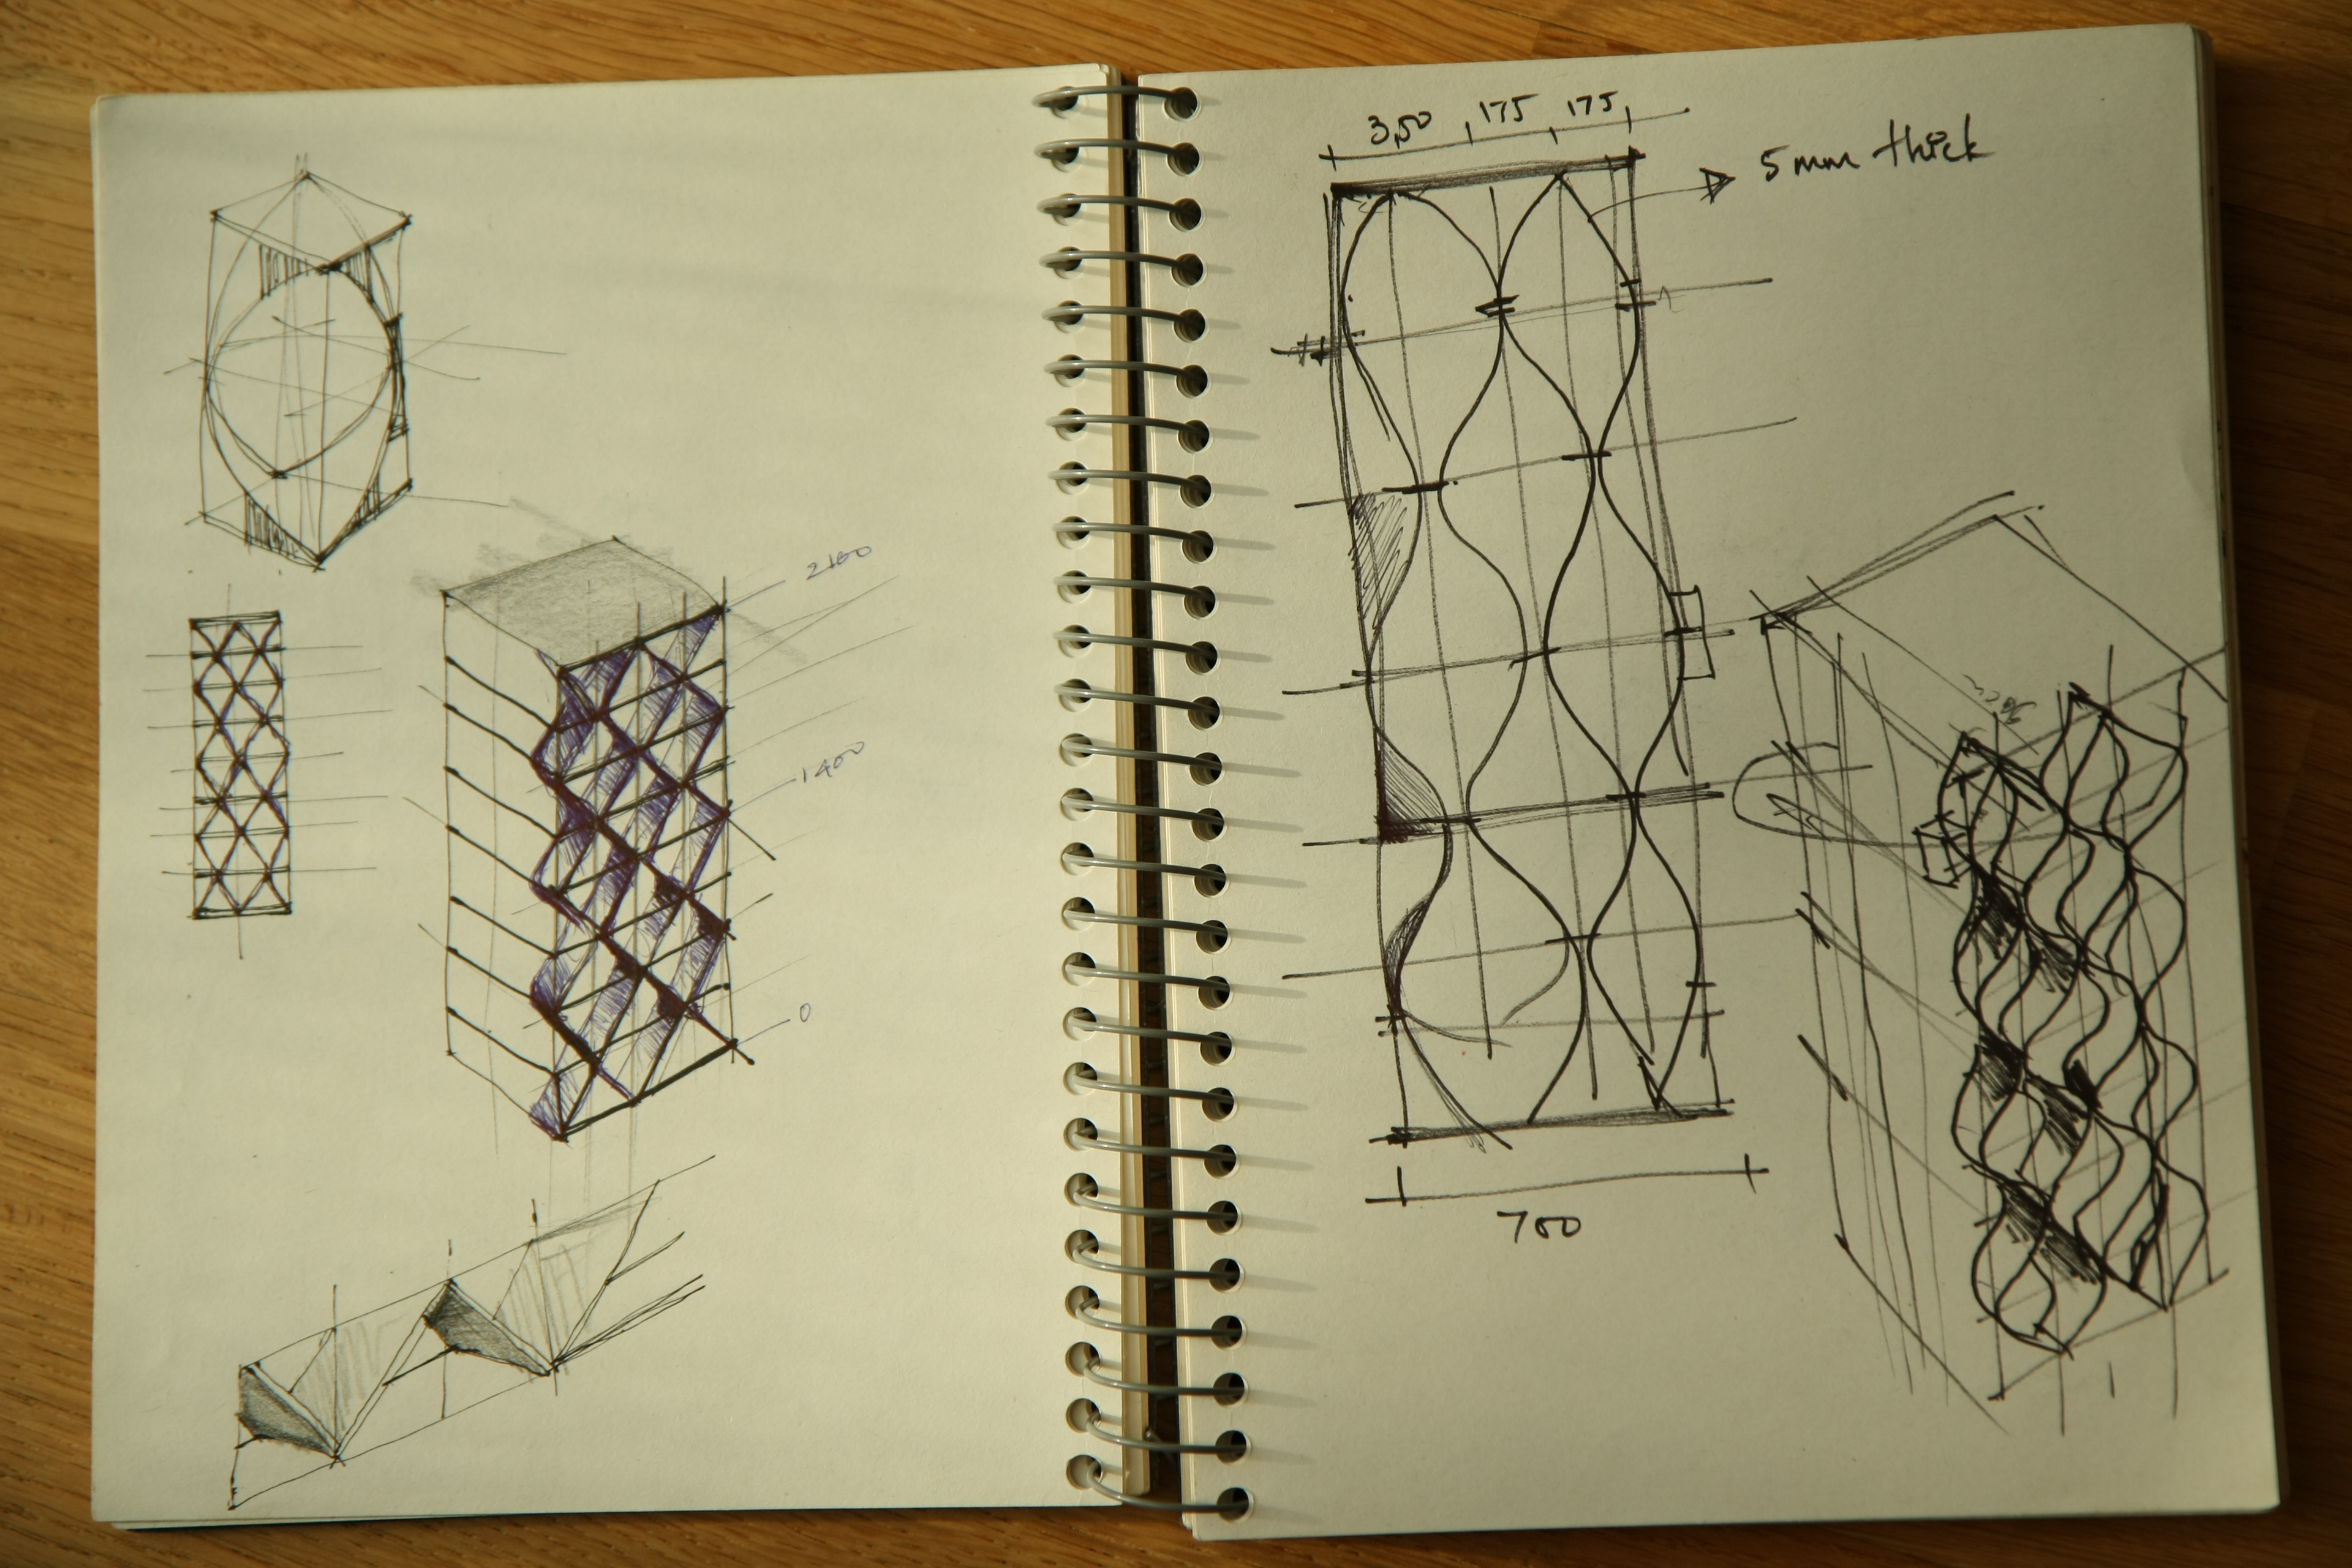 2100
1400
0
3,50 175 175
5mm thick
700